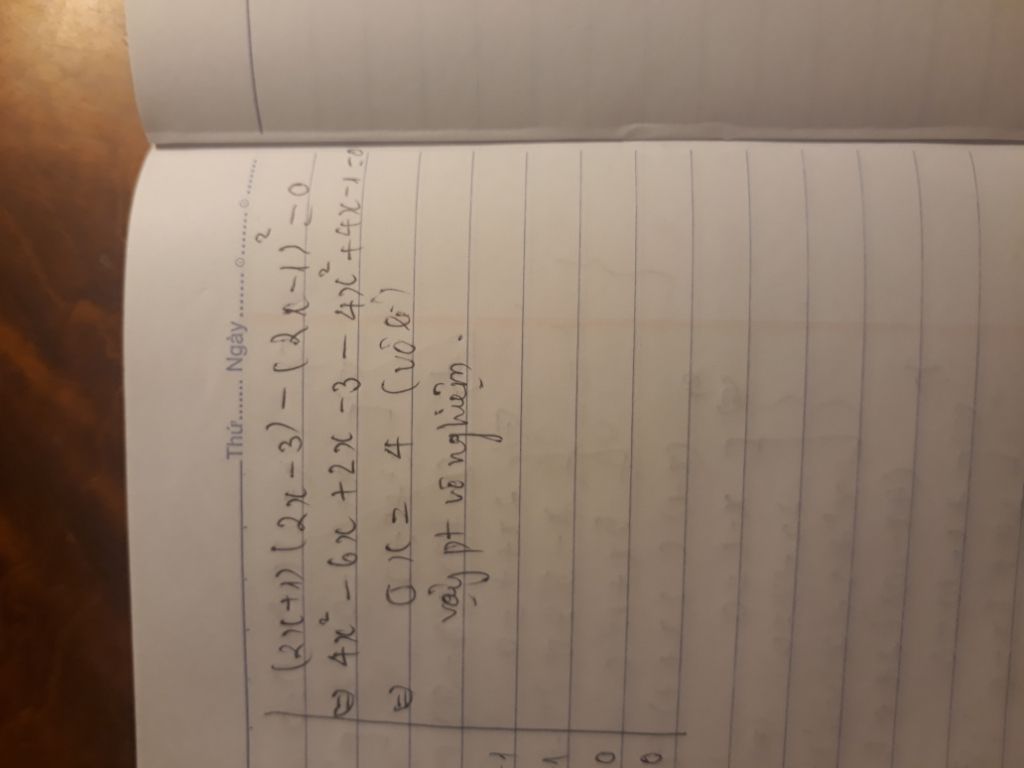 Thứ......... Ngày .........⊙.........⊙.........
(2x+1)(2x-3) - (2x-1)² = 0
⇔ 4x² - 6x + 2x - 3 - 4x² + 4x - 1 = 0
⇔ 0x = 4 (vô lí)
vậy pt vô nghiệm.
-1
1
0
0